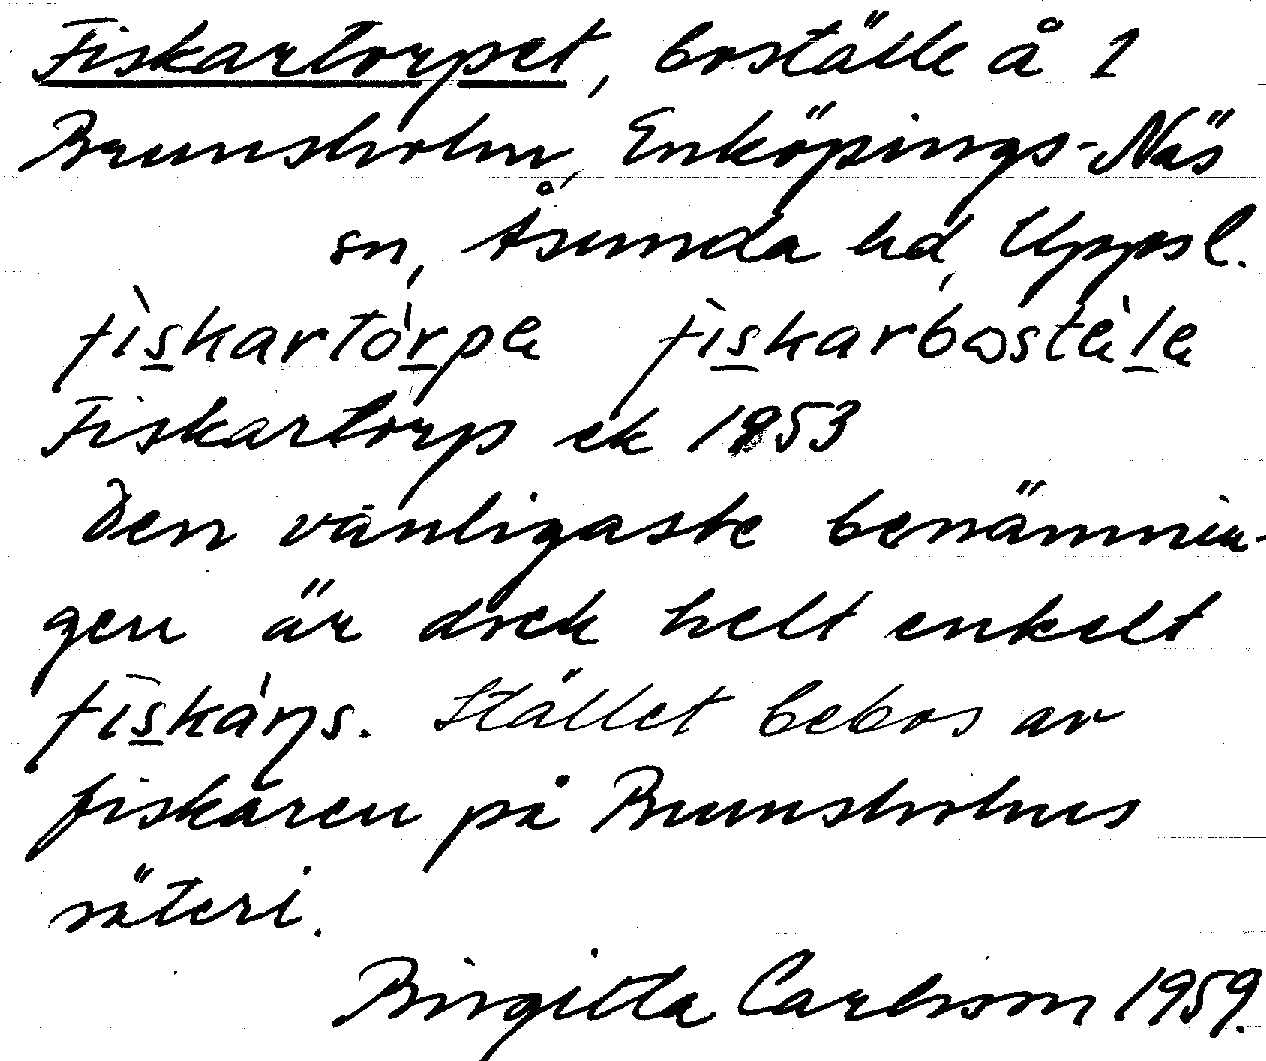 Fiskartorpet, boställe å 1
Brunsholm, Enköpings-Näs
sn, Åsunda hd, Uppsl.
fìskartòrpa fìskarbostèla
Fiskartorp ek 1953
Den vanligaste benämnin-
gen är dock helt enkelt
fiskàrns. Stället bebos av
fiskaren på Brunsholms
säteri.
Birgitta Carlsson 1959.